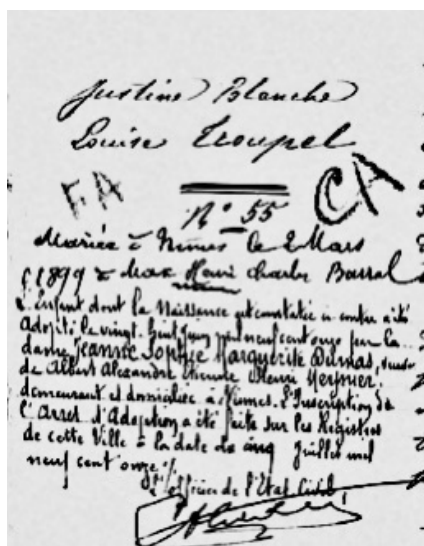 Justine Blanche
Louise Troupel
FA CA
N° 55
Mariée à Nimes le 2 Mars
1899 à Max Henri Charles Barral
L'enfant dont la Naissance est constatée ci contre a été
Adopté le vingt huit Juin mil neuf cent onze par la
dame Jeanne Sophie Marguerite Dumas, veuve
de Albert Alexandre Etienne Henri
demeurant et domiciliée à Nimes. L'Inscription de
l'Arret d'Adoption a été faite sur les Registres
de cette Ville à la date du cinq Juillet mil
neuf cent onze
L'officier de l'Etat Civil,